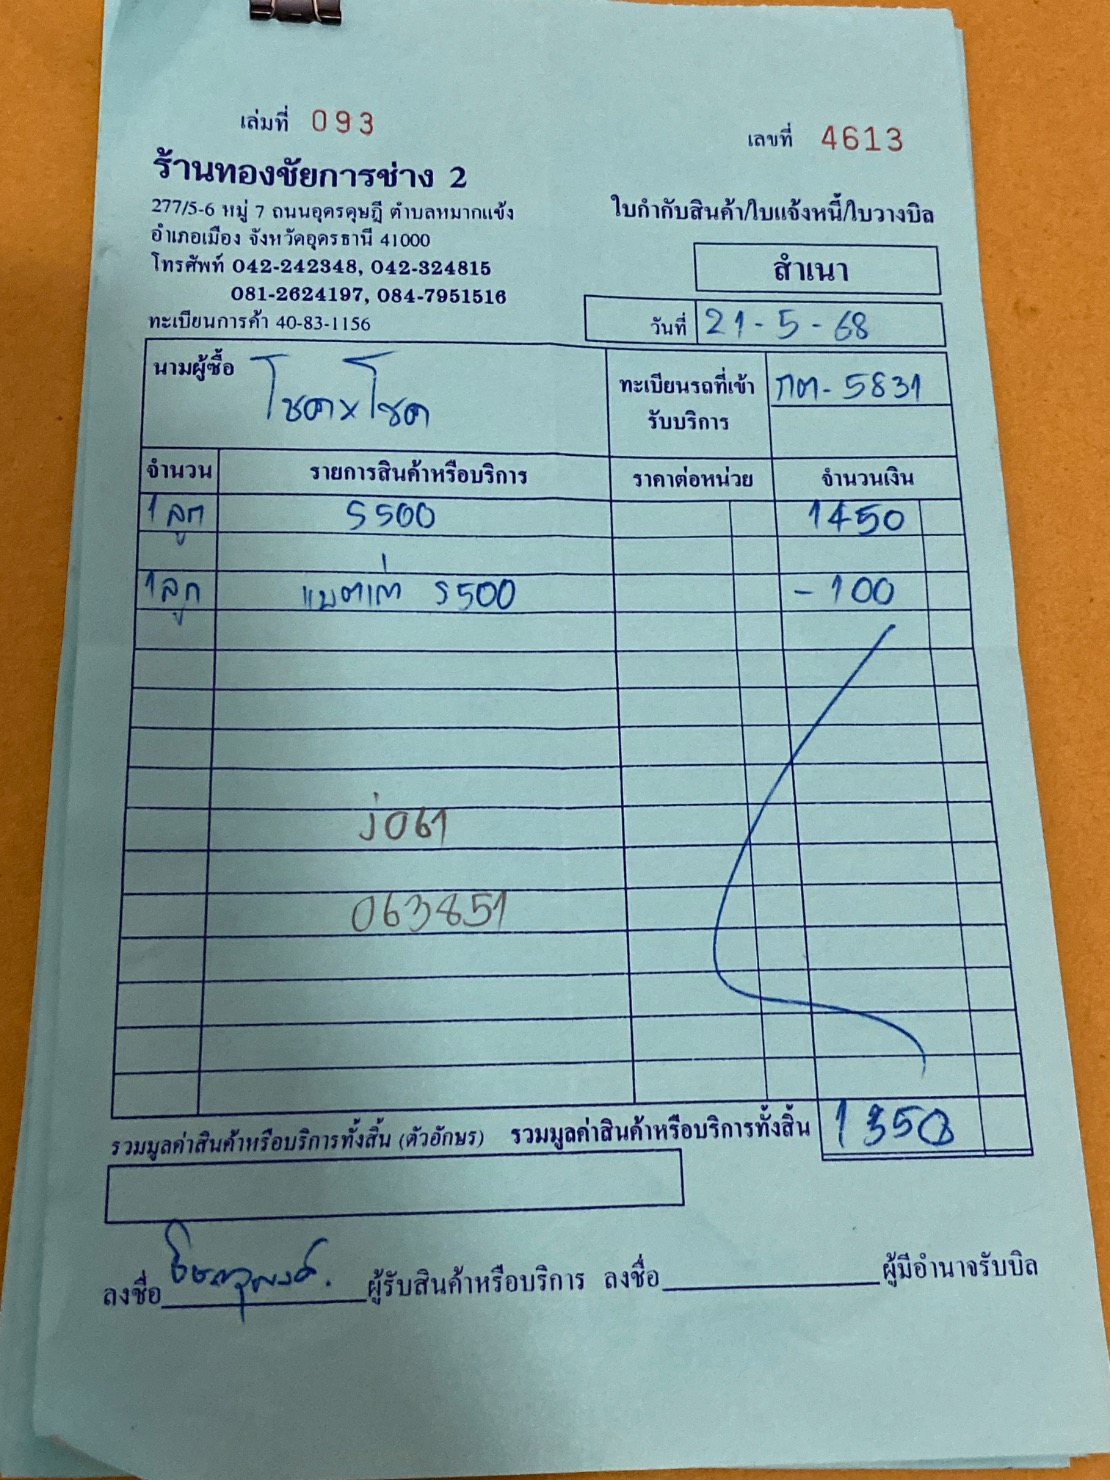 เล่มที่ 093
เลขที่ 4613
ร้านทองชัยการช่าง 2
277/5-6 หมู่ 7 ถนนอุดรดุษฎี ตำบลหมากแข้ง
อำเภอเมือง จังหวัดอุดรธานี 41000
โทรศัพท์ 042-242348, 042-324815
081-2624197, 084-7951516
ทะเบียนการค้า 40-83-1156
ใบกำกับสินค้า/ใบแจ้งหนี้/ใบวางบิล
สำเนา
วันที่ 21-5-68
นามผู้ซื้อ โชคxโชค
ทะเบียนรถที่เข้ารับบริการ กต-5831
จำนวน รายการสินค้าหรือบริการ ราคาต่อหน่วย จำนวนเงิน
1 ลูก S500 1450
1 ลูก แบตเก่า S500 -100
J061
063851
รวมมูลค่าสินค้าหรือบริการทั้งสิ้น (ตัวอักษร) รวมมูลค่าสินค้าหรือบริการทั้งสิ้น 1350
ลงชื่อ ผู้รับสินค้าหรือบริการ ลงชื่อ ผู้มีอำนาจรับบิล